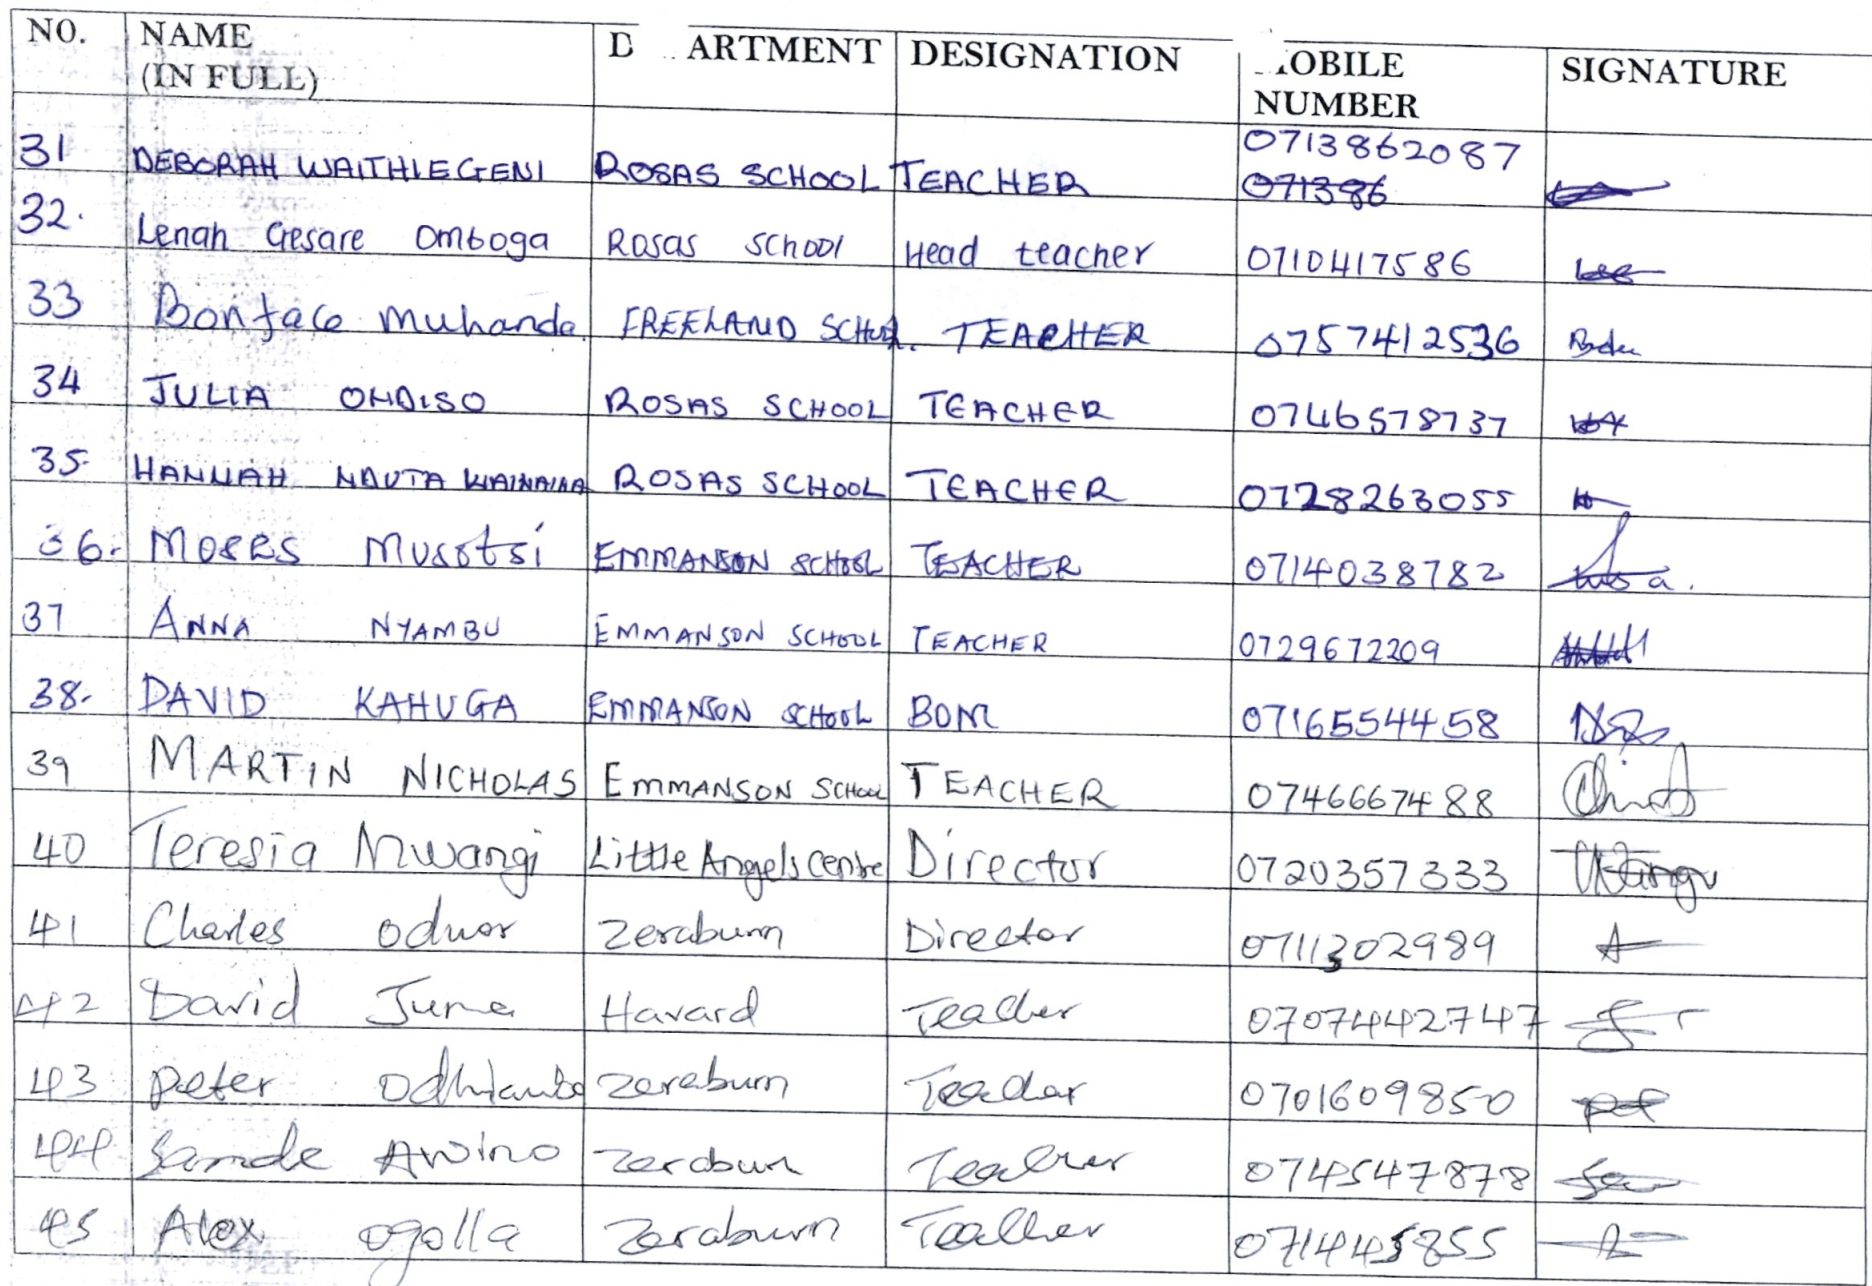 NO. NAME (IN FULL) D ARTMENT DESIGNATION OBILE NUMBER SIGNATURE
31 DEBORAH WAITHIEGENI ROSAS SCHOOL TEACHER 0713862087 071386
32. Lenah Gesare Omboga Rosas school Head teacher 0710417586
33 Boniface Muhanda. FREELAND SCHOOL. TEACHER 0757412536
34 JULIA ONDISO ROSAS SCHOOL TEACHER 0746578737
35 HANNAH WAINAINA ROSAS SCHOOL TEACHER 0728263055
36. MOSES Musotsi EMMANSON SCHOOL TEACHER 0714038782
37 ANNA NYAMBU EMMANSON SCHOOL TEACHER 0729672209
38. DAVID KAHUGA EMMANSON SCHOOL BOM 0716554458
39 MARTIN NICHOLAS EMMANSON SCHOOL TEACHER 0746667488
40 Teresia Mwangi Little Angels Centre Director 0720357333
41 Charles Oduor Zeraburn Director 0711302989
42 David Juma Havard Teacher 0707442747
43 Peter Odhiambo Zeraburn Teacher 0701609850
44 Awino Zeraburn Teacher 0745547878
45 Alex Ogolla Zeraburn Teacher 071445855